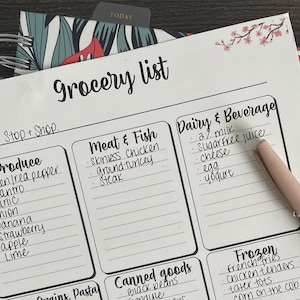 TODAY
Grocery list
Stop + Shop
Produce
red pepper
Meat & Fish
skinless chicken
ground turkey
steak
Dairy & Beverage
2% milk
sugarfree juice
cheese
egg
yogurt
banana
strawberry
apple
Lime
Grains, Pasta
Canned goods
black beans
Frozen
french fries
chicken tenders
tater tots
corn on the cob